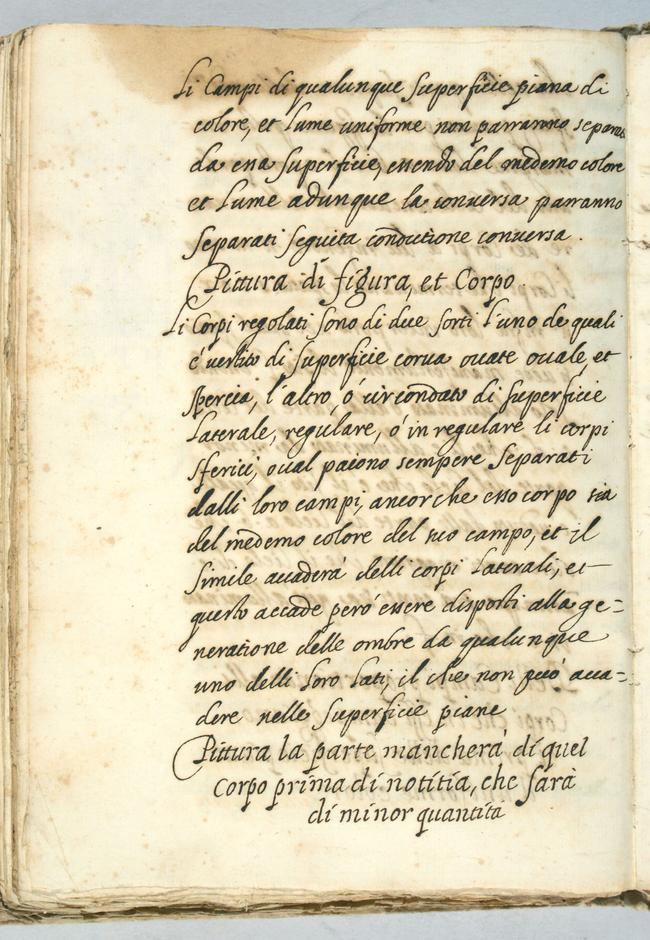 Li Campi di qualunque superficie piana di
colore, et lume uniforme non parranno separa
da essa superficie, essendo del medemo colore
et lume adunque la conversa parranno
separati seguita condutione conversa.
Pittura di figura, et Corpo.
Li Corpi regolati sono di due sorti l'uno de quali
é vestito di superficie corva ovate ovale, et
spercia, l'altro, ó circondato di superficie
laterale, regulare, ó inregulare li corpi
sferici, oval paiono sempere separati
dalli loro campi, ancorche esso corpo sia
del medemo colore del suo campo, et il
simile accaderá delli corpi laterali, et
questo accade peró essere disposti alla ge=
neratione delle ombre da qualunque
uno delli loro lati, il che non puó acca=
dere nelle superficie piane
Pittura la parte mancherá di quel
corpo prima di notitia, che sará
di minor quantitá